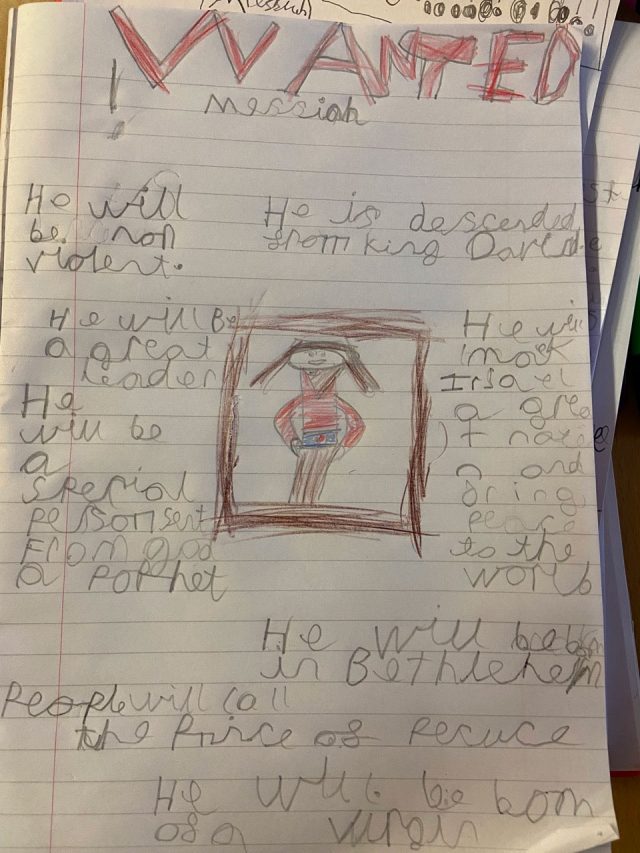 WANTED
!
Messiah
He will
be non
violent.
He is descended
from king David
He will Be
a great
leader
He
will be
a
special
person sent
from god
a porhet
He will
mak
Irsael
a grea
t natio
n and
bring
peace
to the
world
He will be born
in Bethlehem
People will call
the Prince of Pecuce
He will be born
of a virgin